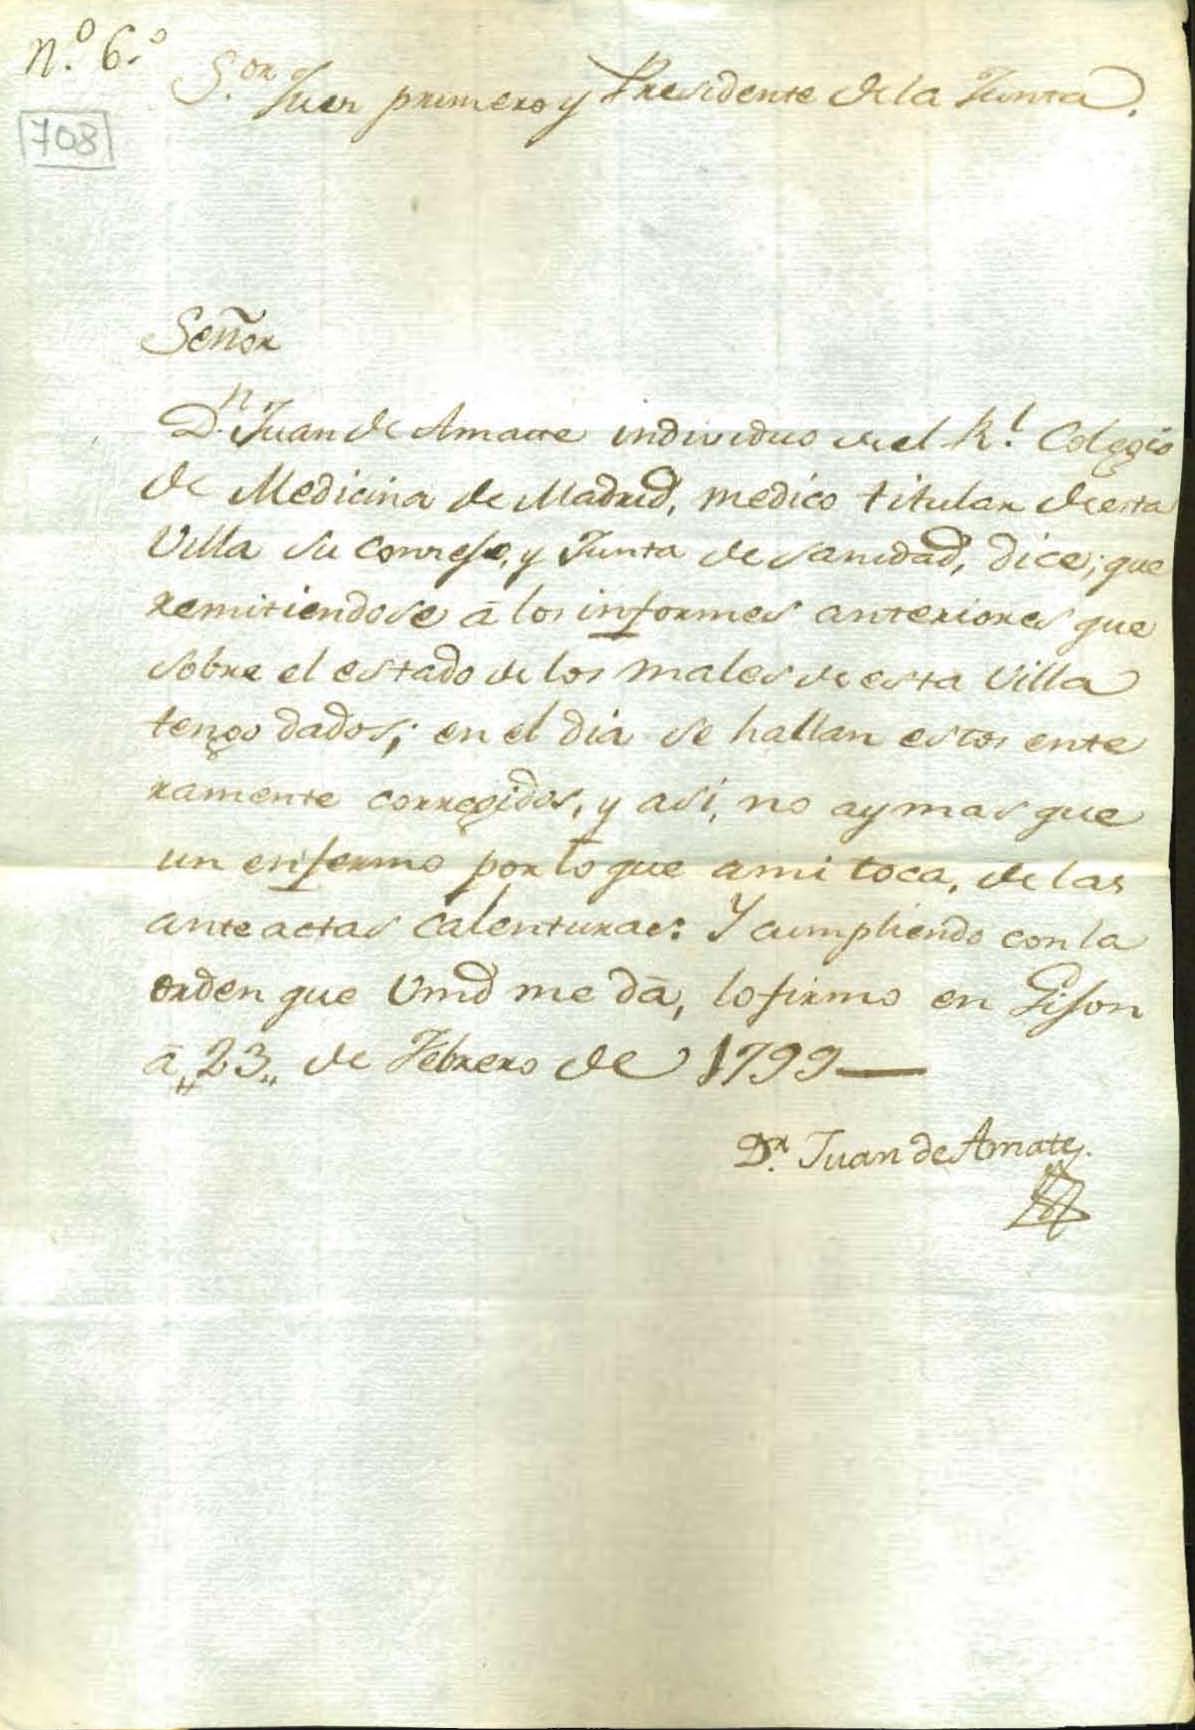 n.º 6.º
708
S.or Juez primero y Presidente de la Junta.
Señor
D.n Juan de Amate individuo de el R.l Colegio
de Medicina de Madrid, medico titular de esta
Villa su Conzejo, y Junta de sanidad, dice; que
remitiendose â los informes anteriores que
sobre el estado de los males de esta Villa
tengo dados; en el dia se hallan estos ente
ramente corregidos, y asi, no ay mas que
un enfermo por lo que a mi toca, de las
ante actas calenturas: Y cumpliendo con la
orden que Vmd me dâ, lo firmo en Gijon
â „23„ de Febrero de 1799—
D.r Juan de Amate.